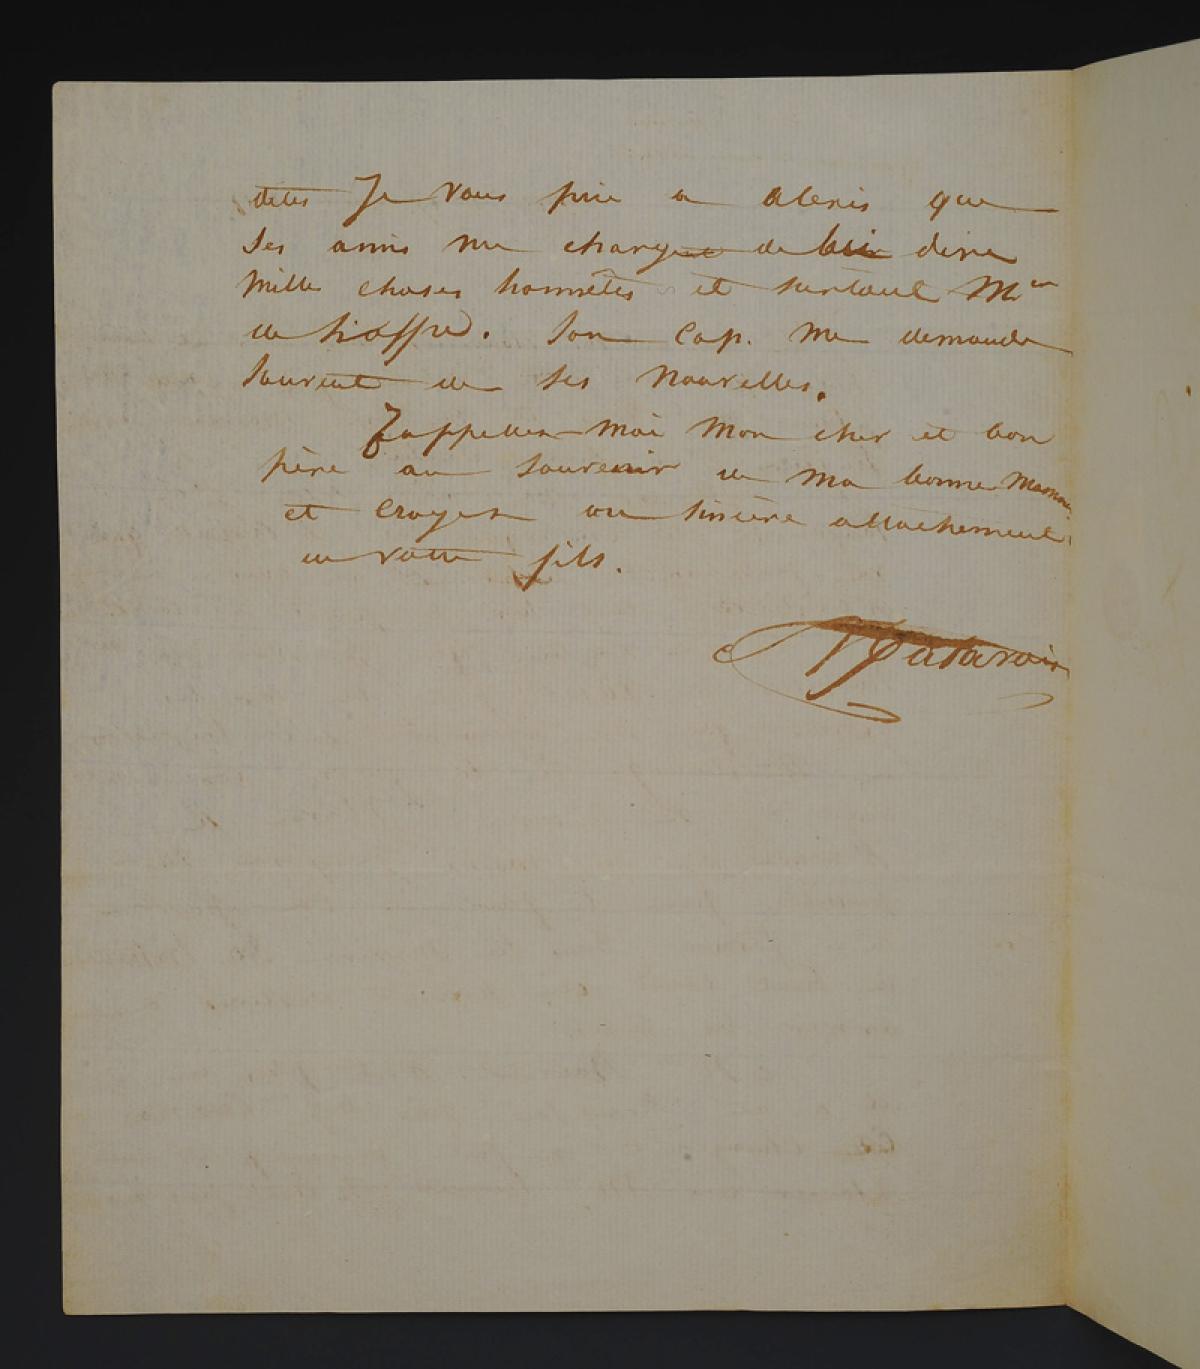 dites Je vous prie a alexis que
Ses amis me charge de lui dire
Mille choses honnêtes et surtout
de Son Cap. me demande
souvent de ses nouvelles.
Rappellez moi mon cher et bon
père au souvenir de ma bonne Maman
et croyez au sincère attachement
de votre fils.